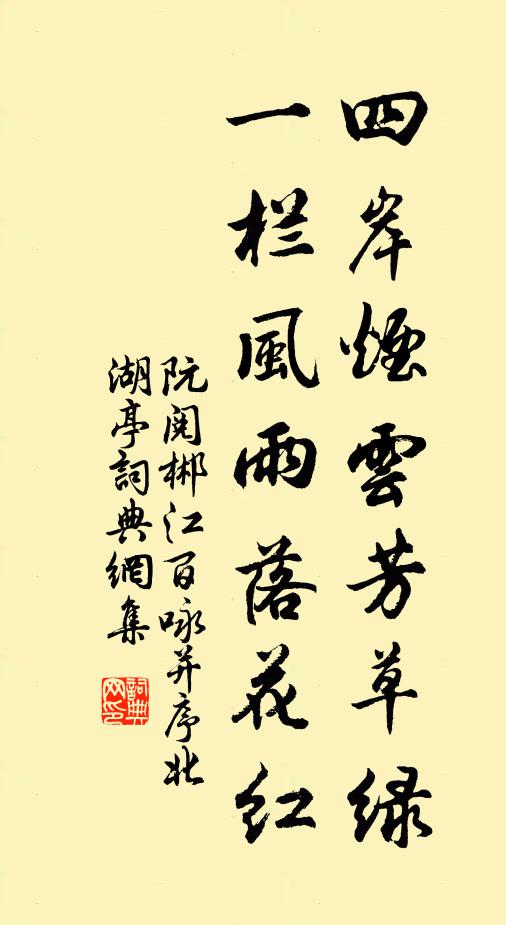 四岸煙雲芳草緑
一栏風雨落花紅
阮阅郴江百咏并序北
湖亭詞典網集
詞典
网印